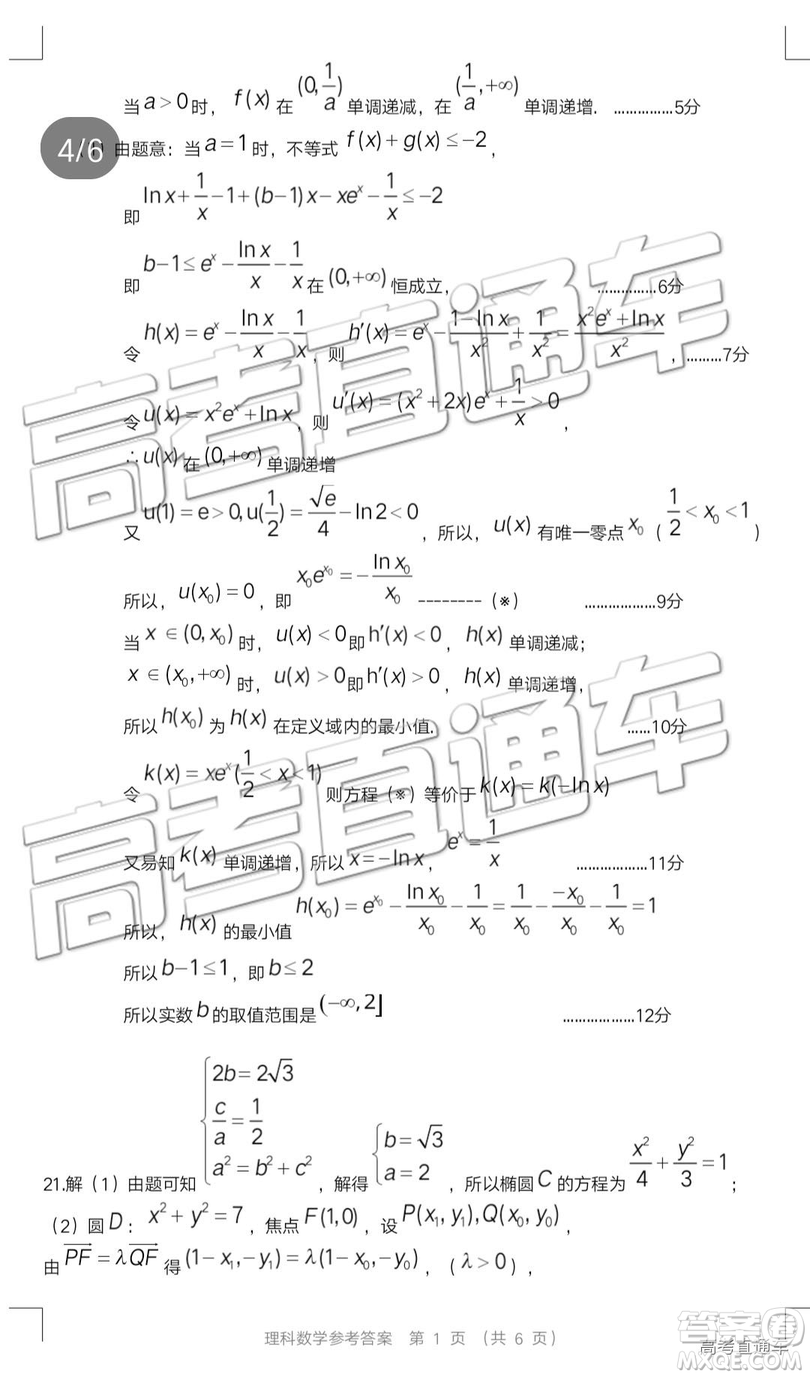 当a>0时，f(x)在(0,1/a)单调递减，在(1/a,+∞)单调递增. ……………5分
4/6
由题意：当a=1时，不等式f(x)+g(x)≤-2，
即 lnx+1/x-1+(b-1)x-xe^x-1/x≤-2
即 b-1≤e^x-lnx/x-1/x在(0,+∞)恒成立，……………6分
令 h(x)=e^x-lnx/x-1/x，则 h′(x)=e^x-(1-lnx)/x²+1/x²=(x²e^x+lnx)/x²，………7分
令u(x)=x²e^x+lnx，则 u′(x)=(x²+2x)e^x+1/x>0，
∴u(x)在(0,+∞)单调递增
又 u(1)=e>0,u(1/2)=√e/4-ln2<0，所以，u(x)有唯一零点x₀（1/2<x₀<1）
所以，u(x₀)=0，即 x₀e^x₀=-lnx₀/x₀ --------（※） ………………9分
当x∈(0,x₀)时，u(x)<0即h′(x)<0，h(x)单调递减；
x∈(x₀,+∞)时，u(x)>0即h′(x)>0，h(x)单调递增，
所以h(x₀)为h(x)在定义域内的最小值. ……10分
令 k(x)=xe^x(1/2<x<1) 则方程（※）等价于k(x)=k(-lnx)
又易知k(x)单调递增，所以x=-lnx，e^x=1/x ………………11分
所以，h(x)的最小值 h(x₀)=e^x₀-lnx₀/x₀-1/x₀=1/x₀-(-x₀)/x₀-1/x₀=1
所以b-1≤1，即b≤2
所以实数b的取值范围是(-∞,2] ………………12分
21.解（1）由题可知{2b=2√3 c/a=1/2 a²=b²+c²，解得{b=√3 a=2，所以椭圆C的方程为x²/4+y²/3=1；
（2）圆D：x²+y²=7，焦点F(1,0)，设P(x₁,y₁),Q(x₀,y₀)，
由PF=λQF得(1-x₁,-y₁)=λ(1-x₀,-y₀)，（λ>0），
理科数学参考答案 第 1 页 （共 6 页）
高考直通车
高考直通车
答案圈
高考直通车
MXQE.COM